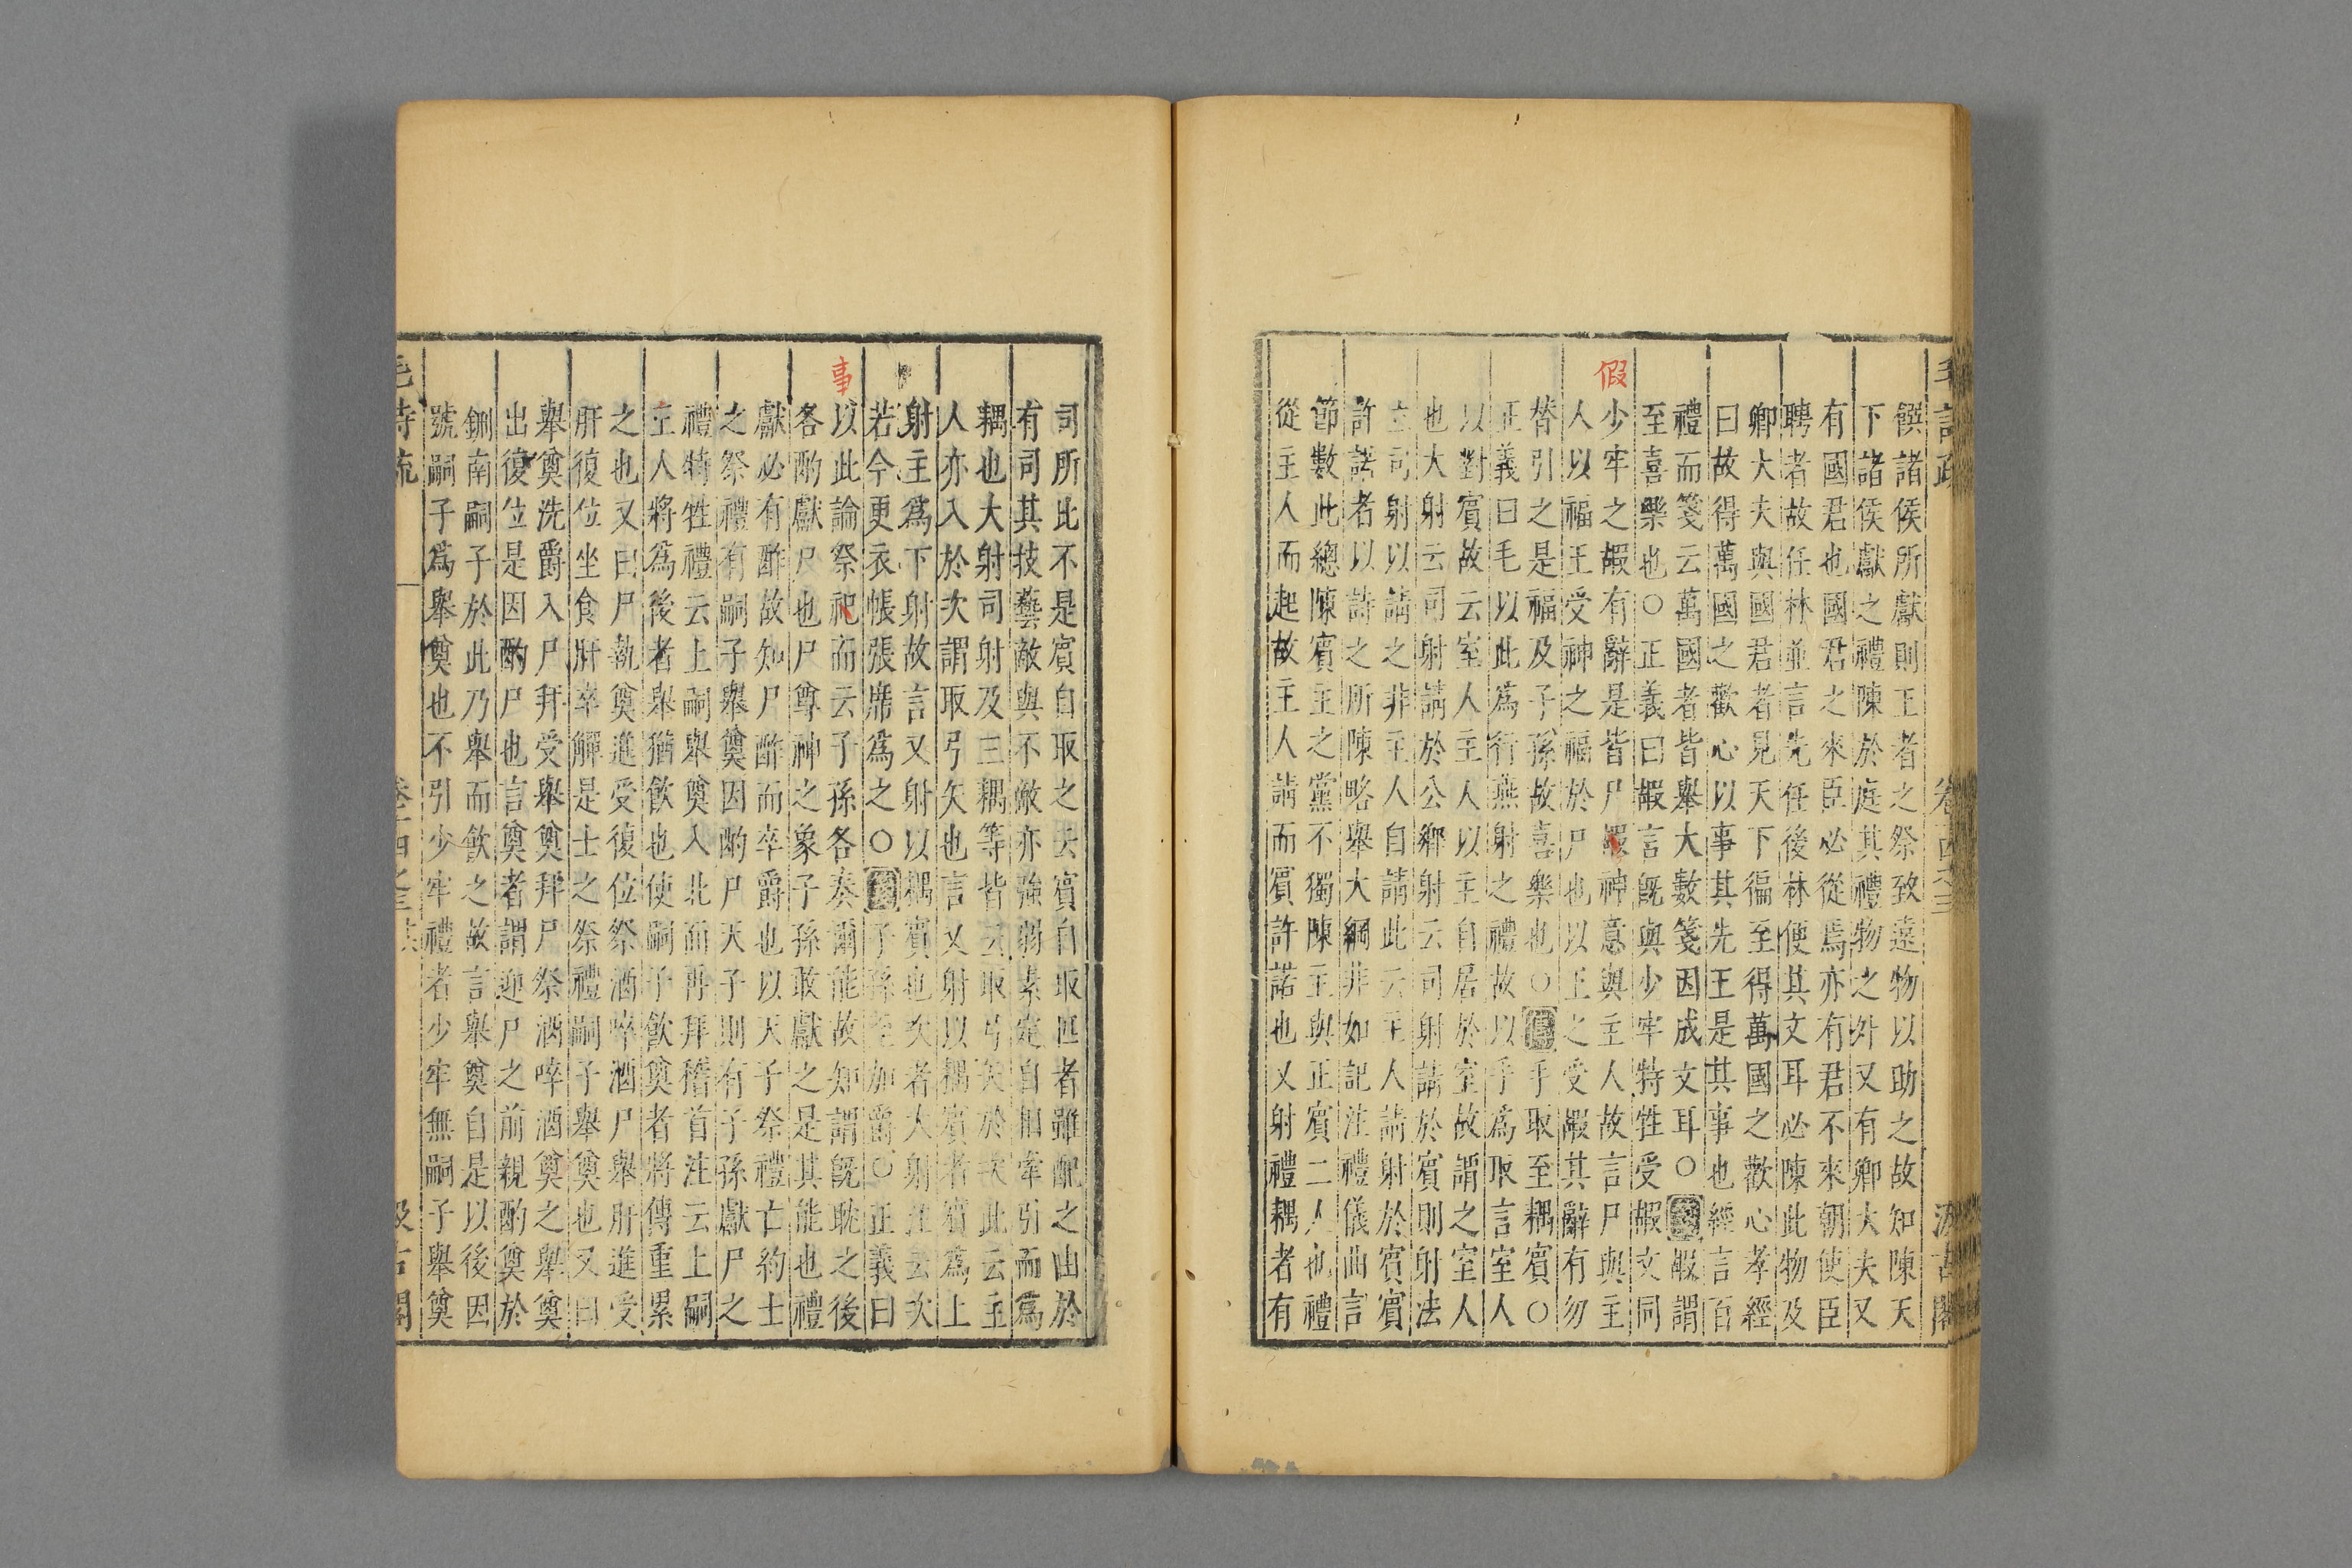 毛詩疏 卷十四之三 汲古閣
饌諸侯所獻則王者之祭致遠物以助之故知陳天
下諸侯獻之禮陳於庭其禮物之外又有卿大夫又
有國君也國君之來臣必從焉亦有君不來朝使臣
聘者故任林並言先任後林使其文耳必陳此物及
卿大夫與國君者見天下徧至得萬國之歡心孝經
曰故得萬國之歡心以事其先王是其事也經言百
禮而箋云萬國者皆舉大數箋因成文耳○嘏謂
至喜樂也○正義曰嘏言旣與少牢特牲受嘏文同
假
少牢之嘏有辭是皆尸嘏神意與主人故言尸與主
人以福王受神之福於尸也以王之受嘏其辭有勿
替引之是福及子孫故喜樂也○手取至耦賓○
正義曰毛以此爲行燕射之禮故以手爲取言室人
以對賓故云室人主人以主自居於室故謂之室人
也大射云司射請於公鄉射云司射請於賓則射法
主司射以請之非主人自請此云主人請射於賓賓
許諾者以許之所陳略舉大綱非如記注禮儀曲言
節數此總陳賓主之黨不獨陳主與正賓二人也禮
從主人而起故主人請而賓許諾也又射禮耦者有
司所比不是賓自取之云賓自取匹者雖配之由於
有司其技藝敵與不敵亦強弱素定自相牽引而爲
耦也大射司射及三耦等皆云取弓矢於次此云主
人亦入於次謂取弓矢也言又射以耦賓者賓爲上
射主爲下射故言又射以耦賓也次者大射注云次
若今更衣帳張席爲之○子孫至加爵○正義曰
事
以此論祭祀而云子孫各奏爾能故知謂旣耽之後
各酌獻尸也尸尊神之象子孫敢獻之是其能也禮
獻必有酢故知尸酢而卒爵也以天子祭禮亡約士
之祭禮有嗣子舉奠因酌尸天子則有子孫獻尸之
禮特牲禮云上嗣舉奠入北面再拜稽首注云上嗣
主人將爲後者舉猶飮也使嗣子飮奠者將傳重累
之也又曰尸執奠進受復位祭酒啐酒尸舉肝進受
肝復位坐食肝卒觶是士之祭禮嗣子舉奠也又曰
舉奠洗爵入尸拜受舉奠拜尸祭酒啐酒奠之舉奠
出復位是因酌尸也言奠者謂迎尸之前親酌奠於
鉶南嗣子於此乃舉而飮之故言舉奠自是以後因
號嗣子爲舉奠也不引少牢禮者少牢無嗣子舉奠
毛詩疏 卷十四之三 汲古閣